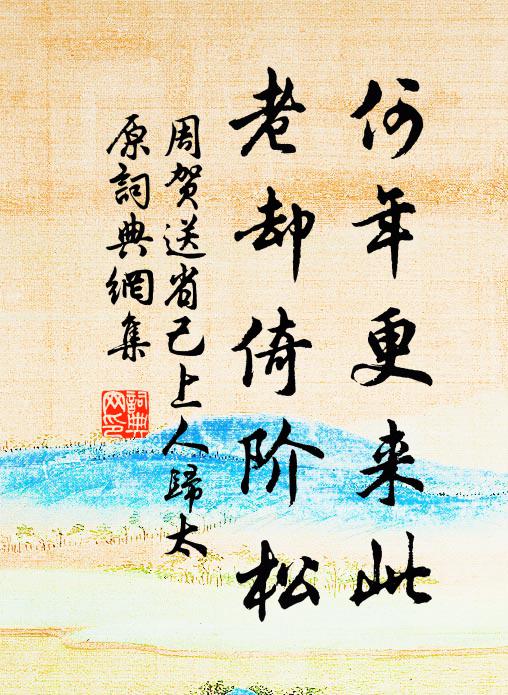 何年更来此
老却倚阶松
周贺送省己上人歸太
原詞典網集
詞典
网印